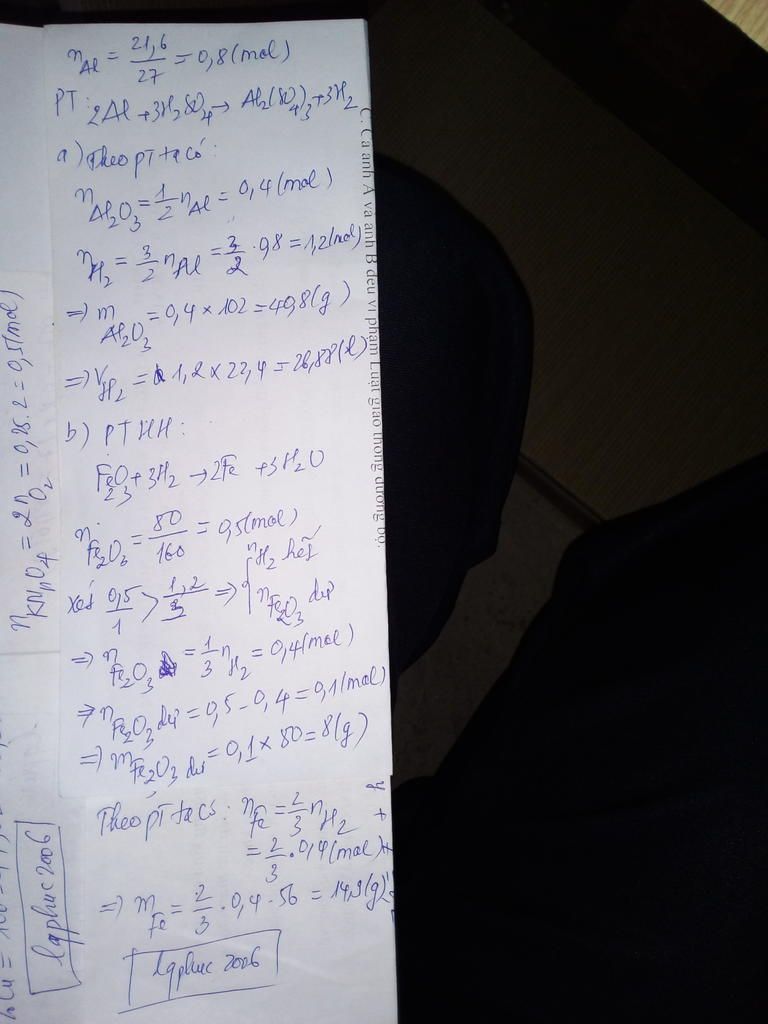 n_Al = 21,6/27 = 0,8 (mol)
PT: 2Al + 3H₂SO₄ → Al₂(SO₄)₃ + 3H₂
a) Theo pt ta có:
n_Al₂O₃ = 1/2 n_Al = 0,4 (mol)
n_H₂ = 3/2 n_Al = 3/2 . 0,8 = 1,2 (mol)
=> m_Al₂O₃ = 0,4 × 102 = 40,8 (g)
=> V_H₂ = 1,2 × 22,4 = 26,88 (l)
b) PTHH:
Fe₂O₃ + 3H₂ → 2Fe + 3H₂O
n_Fe₂O₃ = 80/160 = 0,5 (mol)
xét 0,5/1 > 1,2/3 => { n_H₂ hết
n_Fe₂O₃ dư
=> n_Fe₂O₃ = 1/3 n_H₂ = 0,4 (mol)
=> n_Fe₂O₃ dư = 0,5 - 0,4 = 0,1 (mol)
=> m_Fe₂O₃ dư = 0,1 × 80 = 8 (g)
Theo pt ta có: n_Fe = 2/3 n_H₂
= 2/3 . 0,4 (mol)
=> m_Fe = 2/3 . 0,4 . 56 = 14,9 (g)
lqphuc 2006
C: Cả anh A và anh B đều vi phạm Luật giao thông đường bộ.
n_KMnO₄ = 2n_O₂ = 0,25 . 2 = 0,5 (mol)
lqphuc 2006